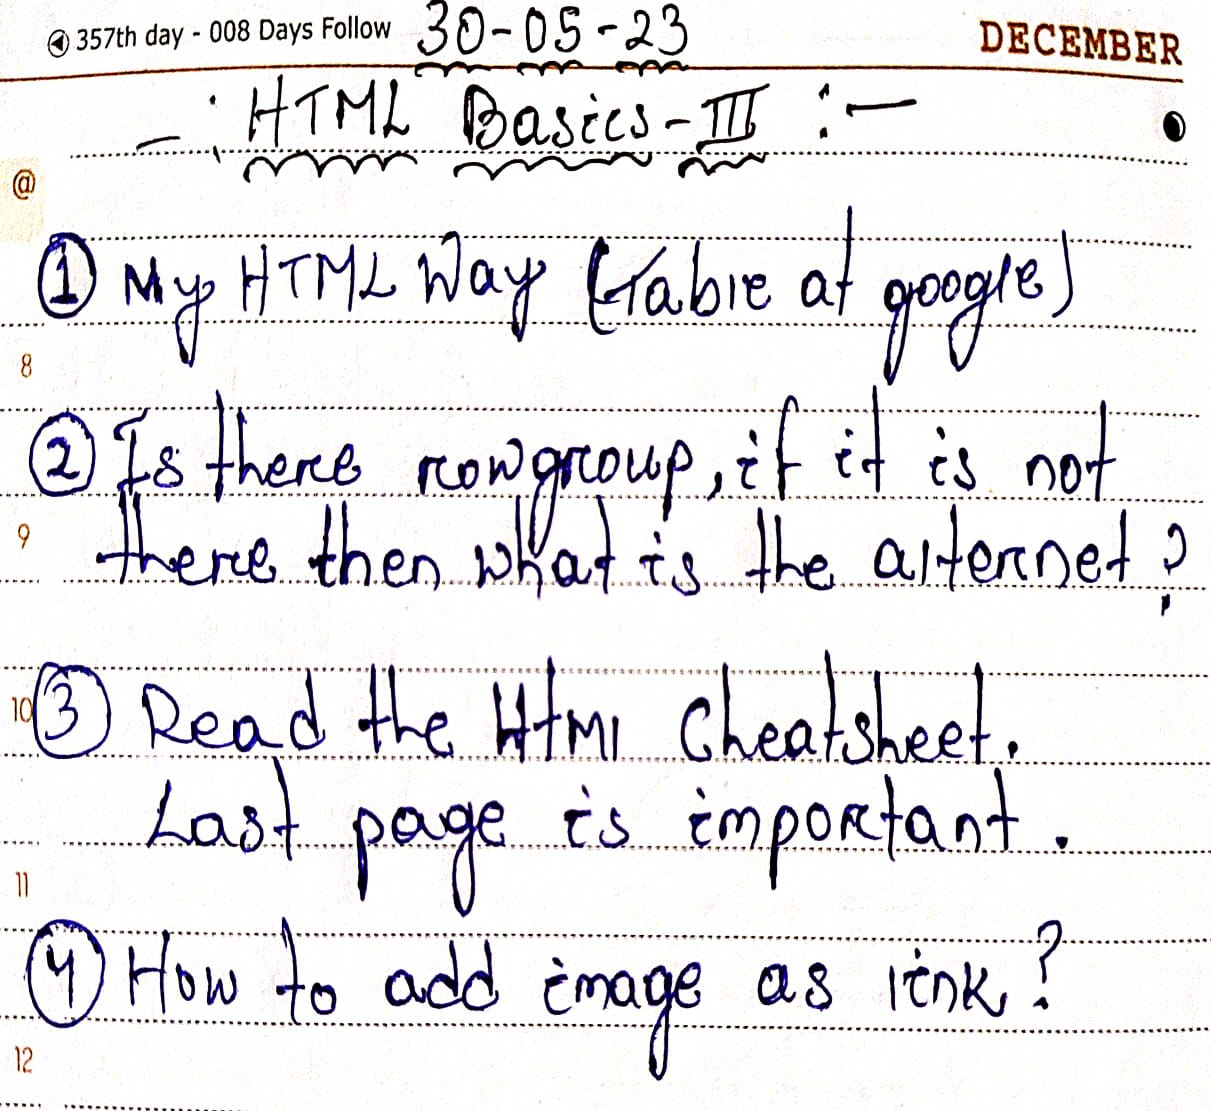 357th day - 008 Days Follow 30-05-23 DECEMBER
-: HTML Basics-III :-
@
① My HTML Way (Table at google)
8
② Is there rowgroup, if it is not
9
there then what is the alternet?
10
③ Read the HtMl Cheatsheet.
Last page is important.
11
④ How to add image as link?
12